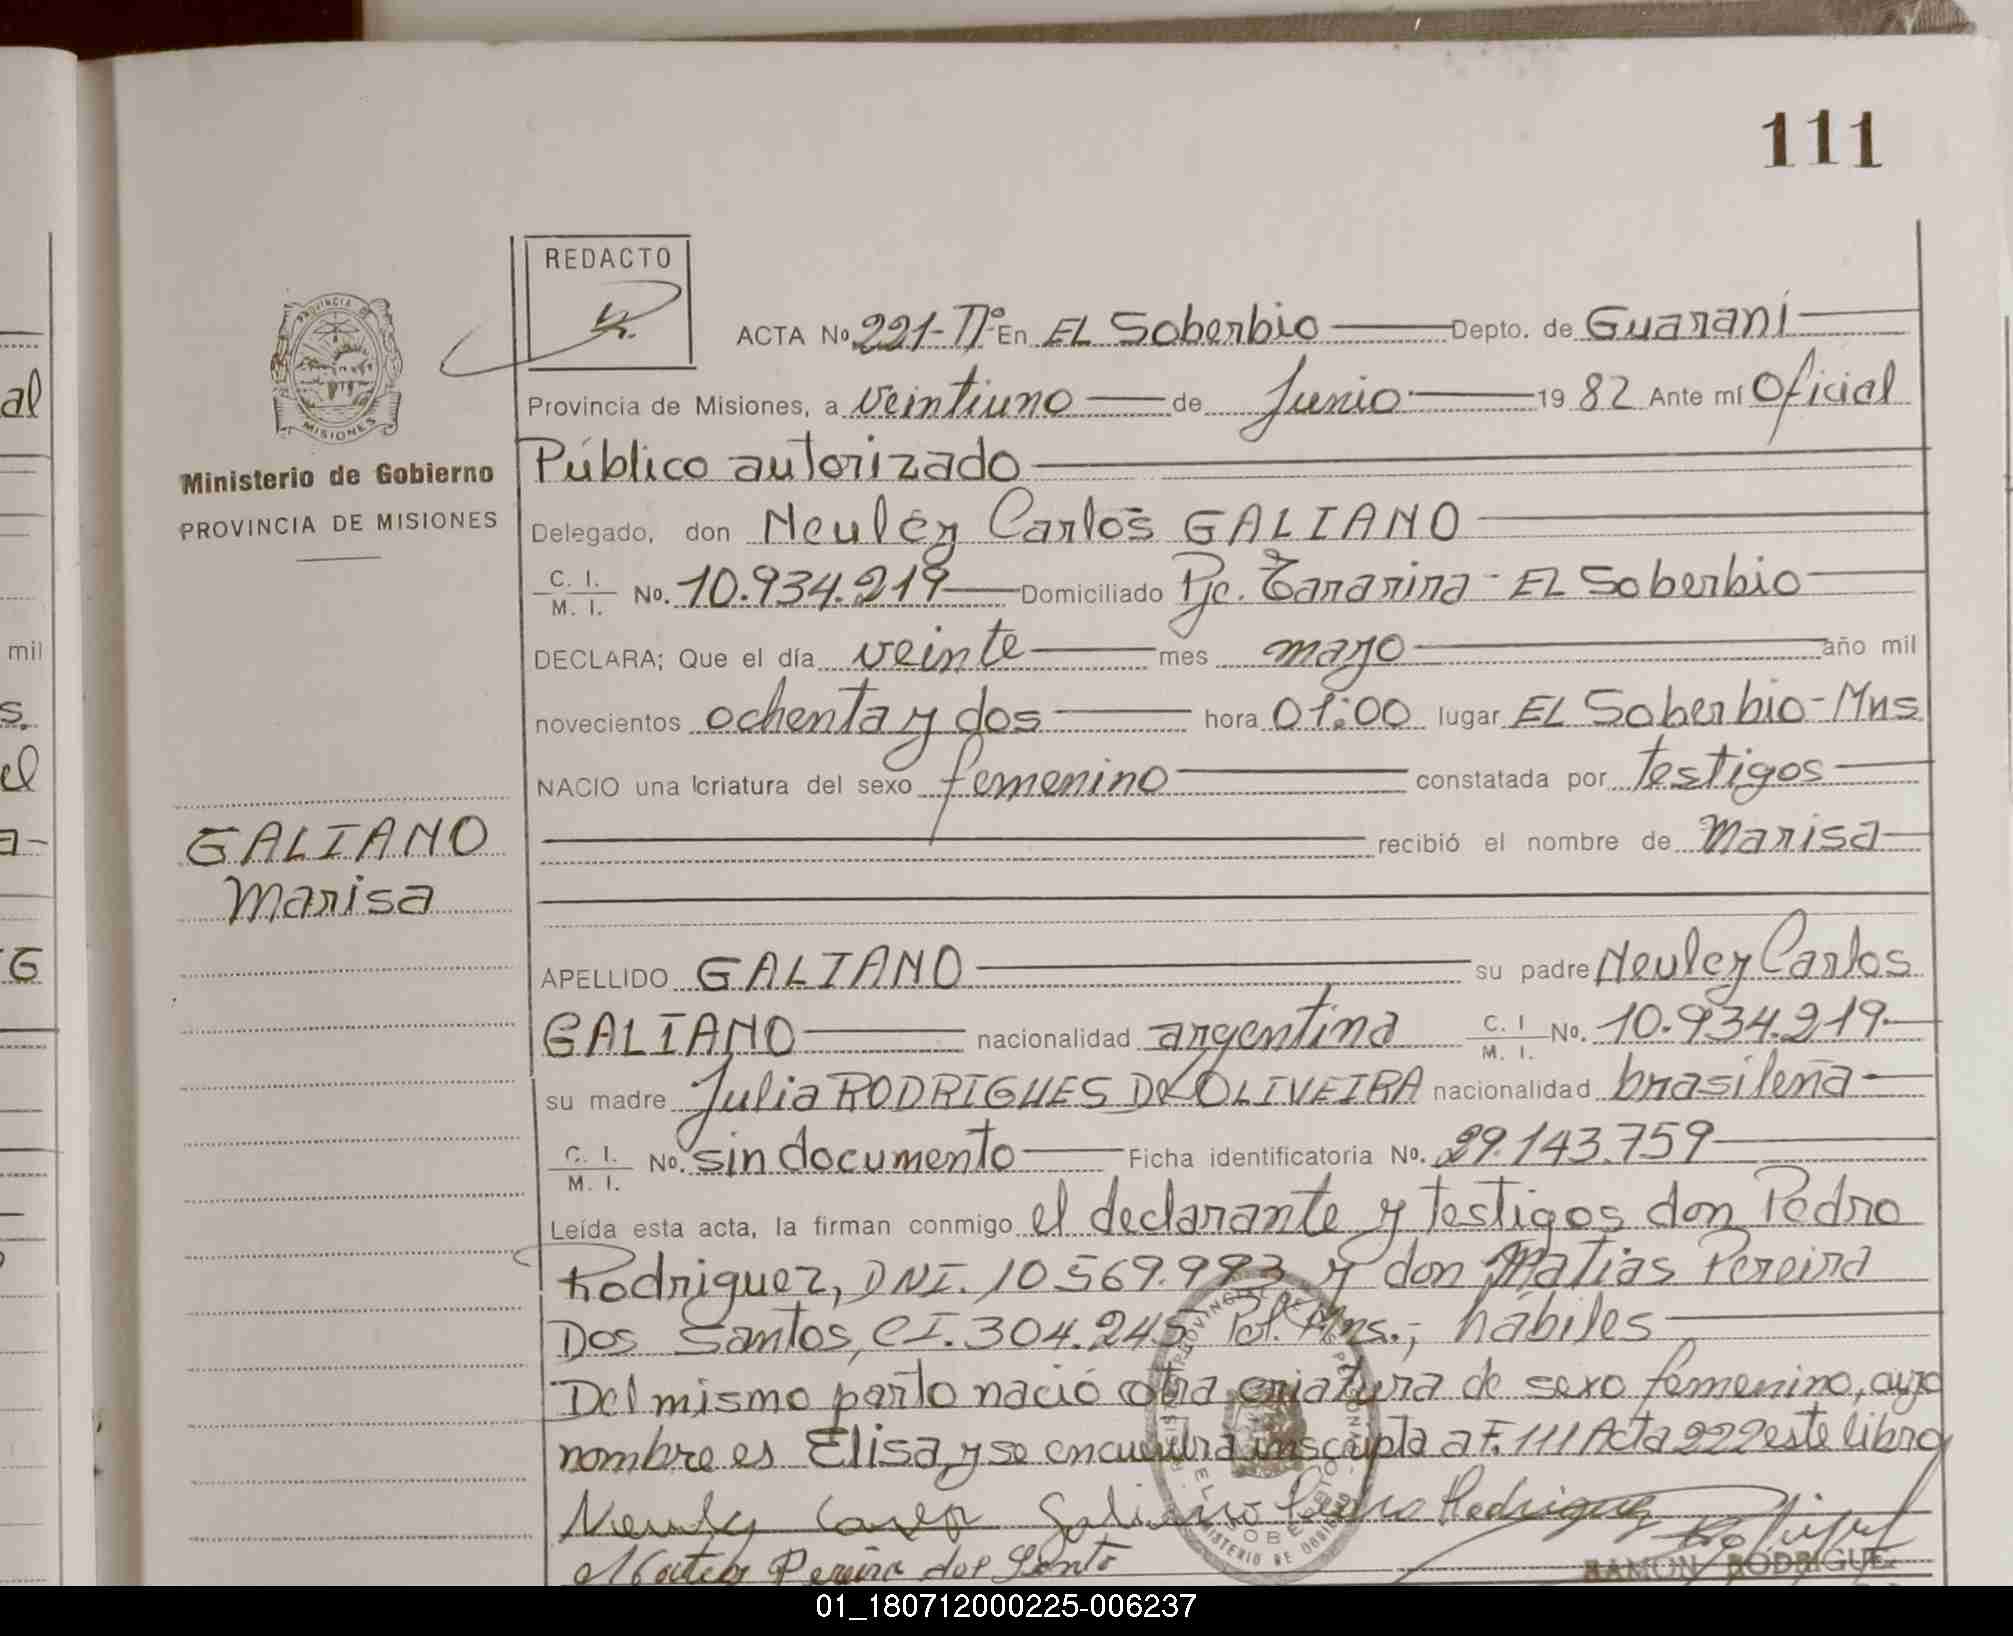 111
REDACTO
PROVINCIA DE
MISIONES
Ministerio de Gobierno
PROVINCIA DE MISIONES
ACTA No. 221-Tº En EL Soberbio Depto. de Guaraní
Provincia de Misiones, a veintiuno de Junio 19 82 Ante mí Oficial
Público autorizado
Delegado, don Neuley Carlos GALIANO
C. I. / M. I. No. 10.934.219 Domiciliado Pje. Tararira - EL Soberbio
DECLARA; Que el día veinte mes mayo año mil
novecientos ochenta y dos hora 01:00 lugar EL Soberbio-Mns
NACIO una criatura del sexo femenino constatada por testigos
recibió el nombre de Marisa
GALIANO
Marisa
APELLIDO GALIANO su padre Neuley Carlos
GALIANO nacionalidad argentina C. I / M. I. No. 10.934.219
su madre Julia RODRIGUES DE OLIVEIRA nacionalidad brasileña
C. I. / M. I. No. sin documento Ficha identificatoria No. 29.143.759
Leída esta acta, la firman conmigo el declarante y testigos don Pedro
Rodriguez, DNI. 10.569.993 y don Matias Pereira
Dos Santos, CI. 304.245 Pol. Mns.; hábiles
Del mismo parto nació otra criatura de sexo femenino, cuyo
nombre es Elisa y se encuentra inscripta a F. 111 Acta 222 este libro
Pedro Rodriguez
Pereira dos Santo
RAMON RODRIGUE
EL SOBERBIO
MINISTERIO DE GOBIERNO
al
mil
s.
el
a-
G
01_180712000225-006237